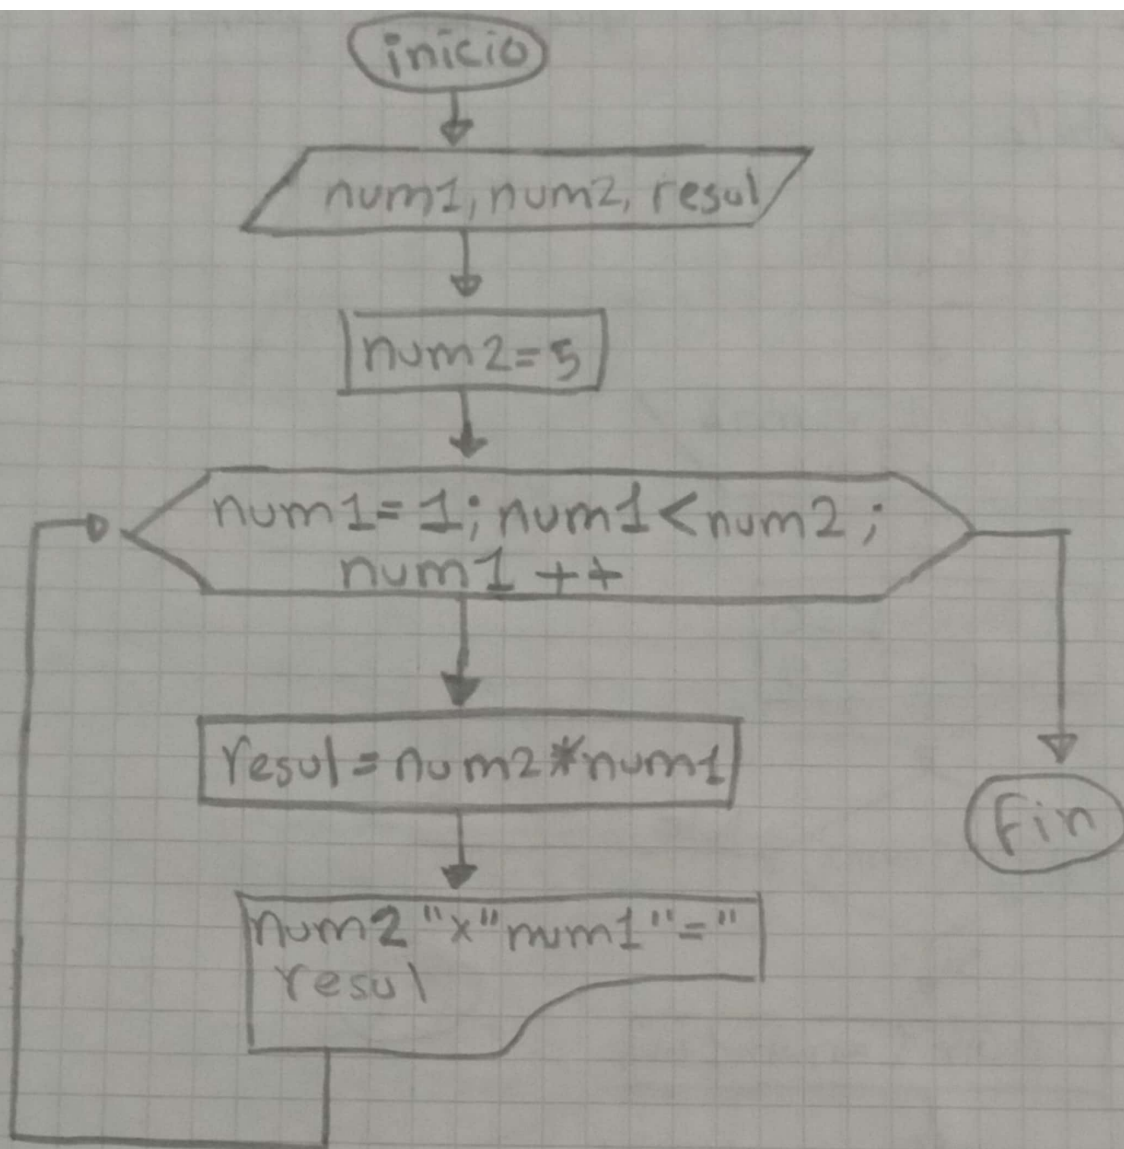 inicio
num1, num2, resul
num2=5
num1=1; num1<num2;
num1 ++
resul=num2*num1
Fin
num2 "x" num1 "="
resul